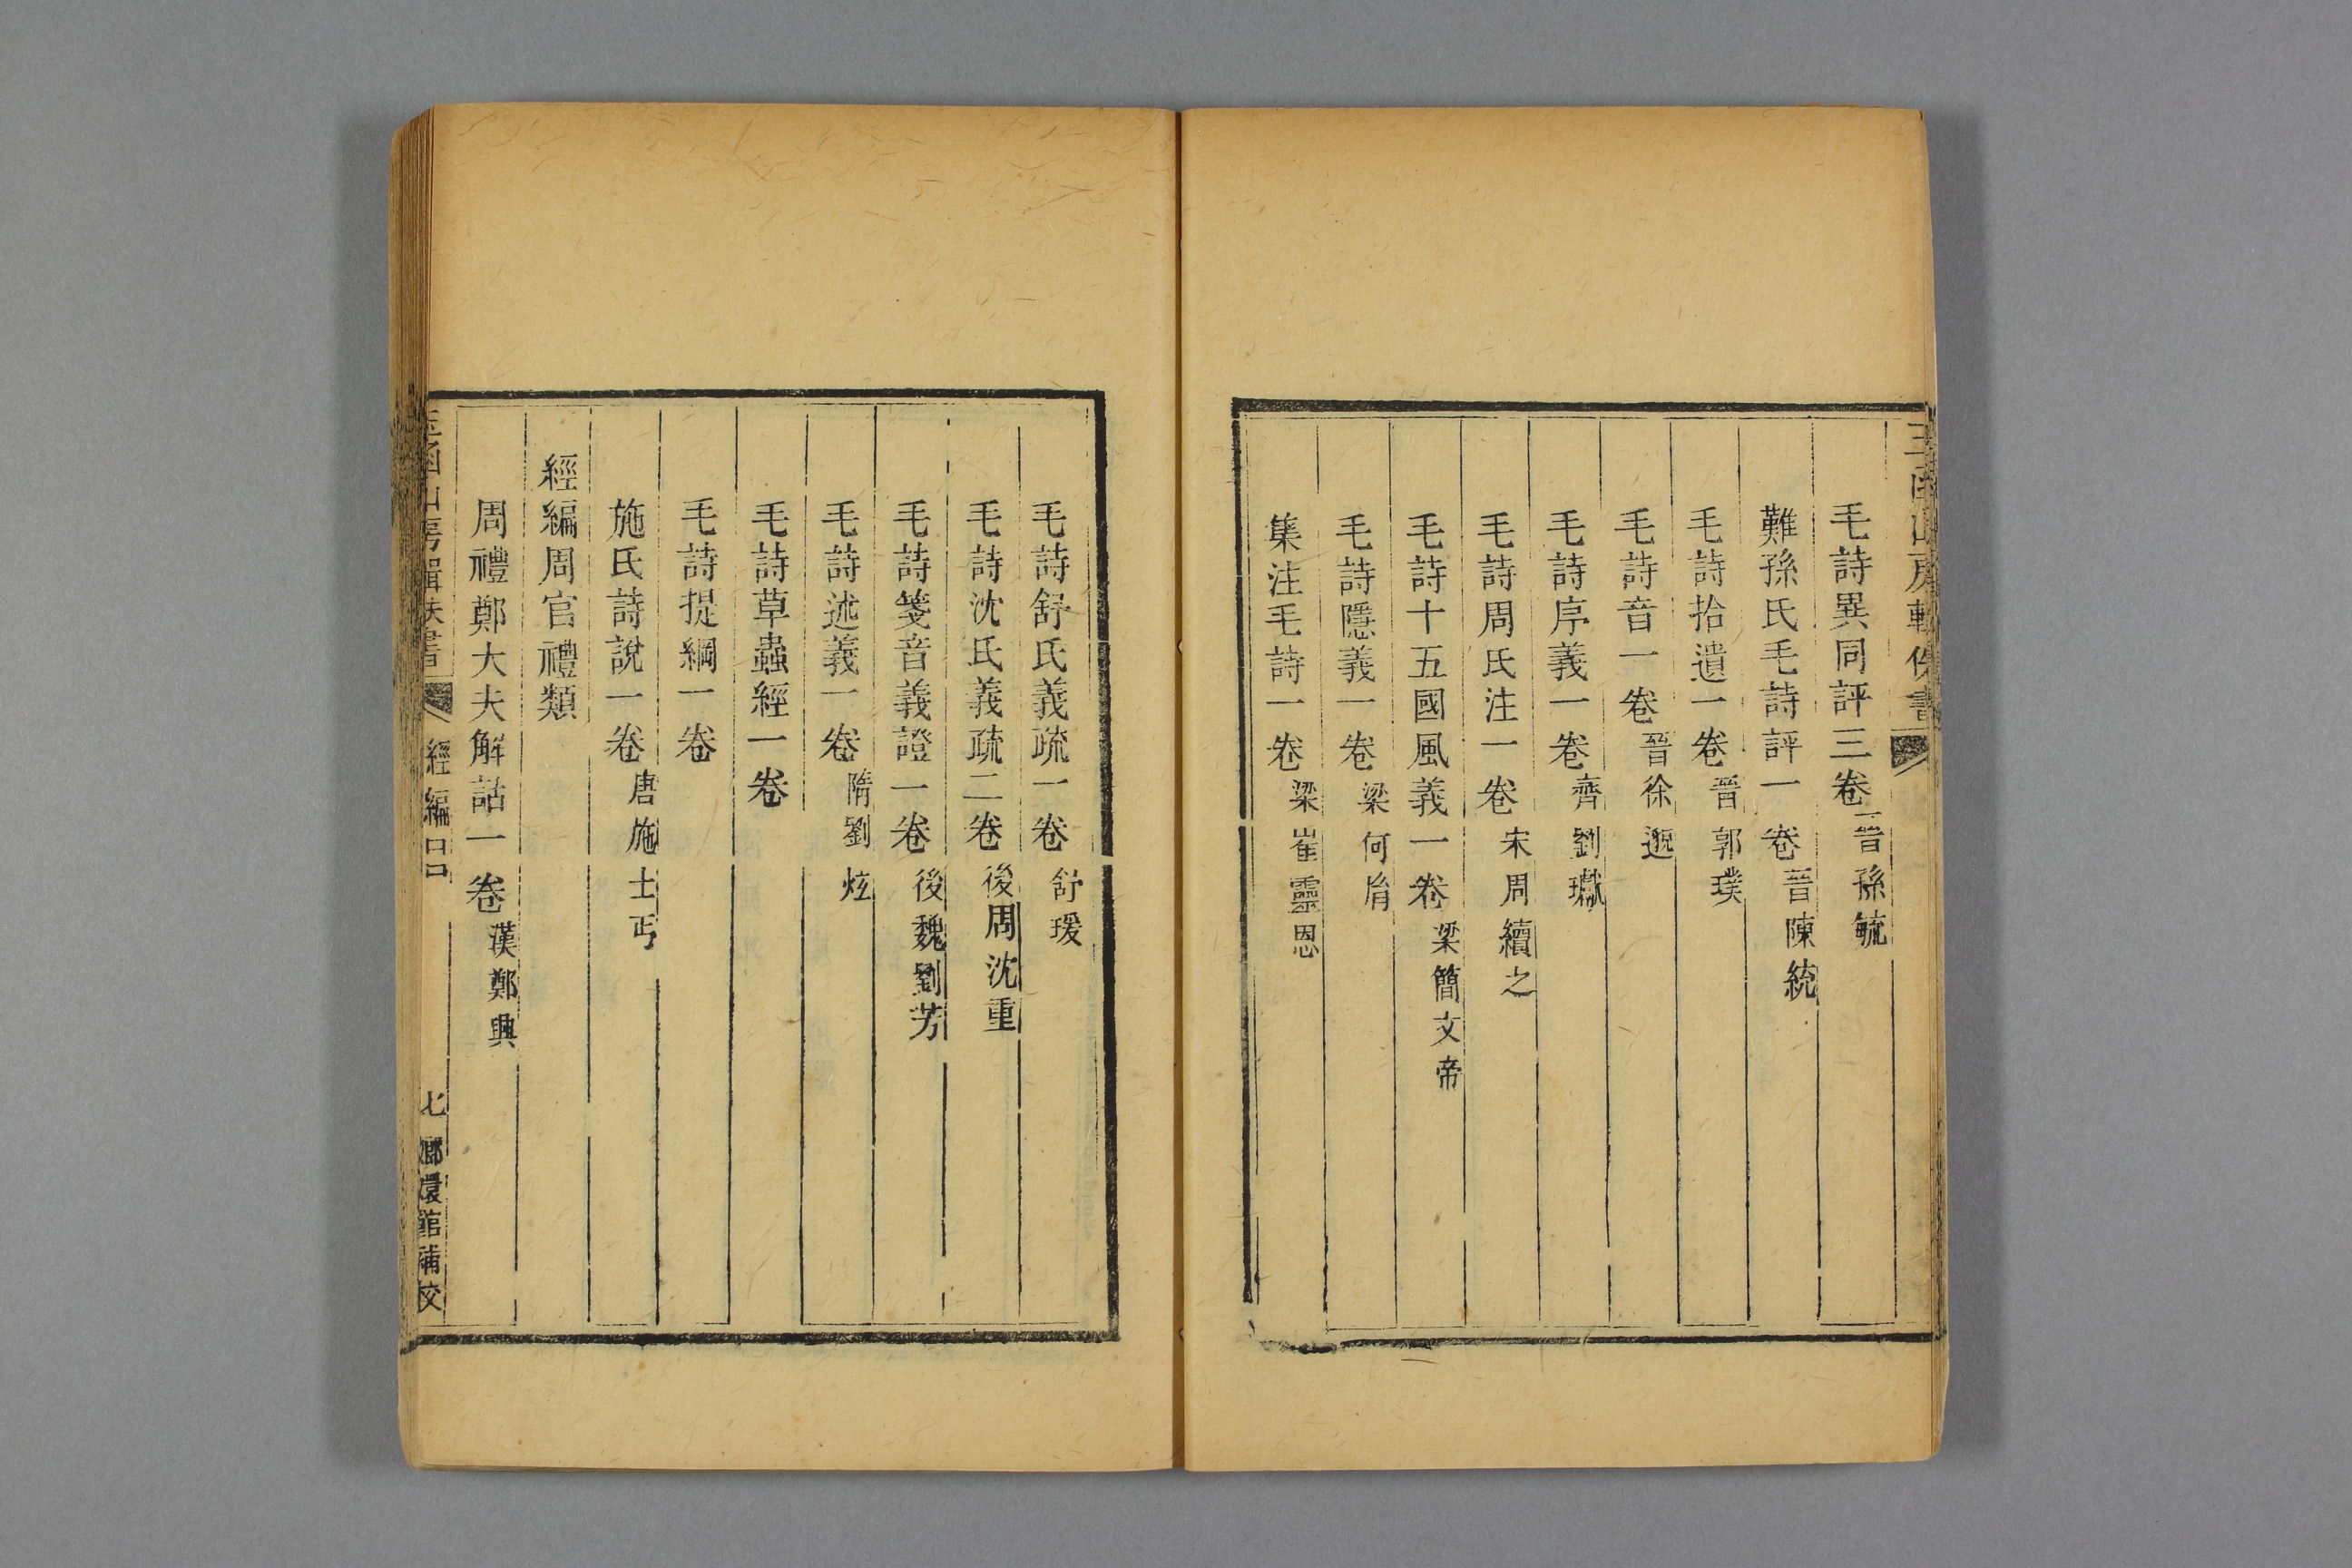 玉函山房輯佚書
毛詩異同評三卷 晉孫毓
難孫氏毛詩評一卷 晉陳統
毛詩拾遺一卷 晉郭璞
毛詩音一卷 晉徐邈
毛詩序義一卷 齊劉瓛
毛詩周氏注一卷 宋周續之
毛詩十五國風義一卷 梁簡文帝
毛詩隱義一卷 梁何胤
集注毛詩一卷 梁崔靈恩
毛詩舒氏義疏一卷 舒瑗
毛詩沈氏義疏二卷 後周沈重
毛詩箋音義證一卷 後魏劉芳
毛詩述義一卷 隋劉炫
毛詩草蟲經一卷
毛詩提綱一卷
施氏詩說一卷 唐施士丐
經編周官禮類
周禮鄭大夫解詁一卷 漢鄭興
玉函山房輯佚書 經編 七 嫏嬛館補校